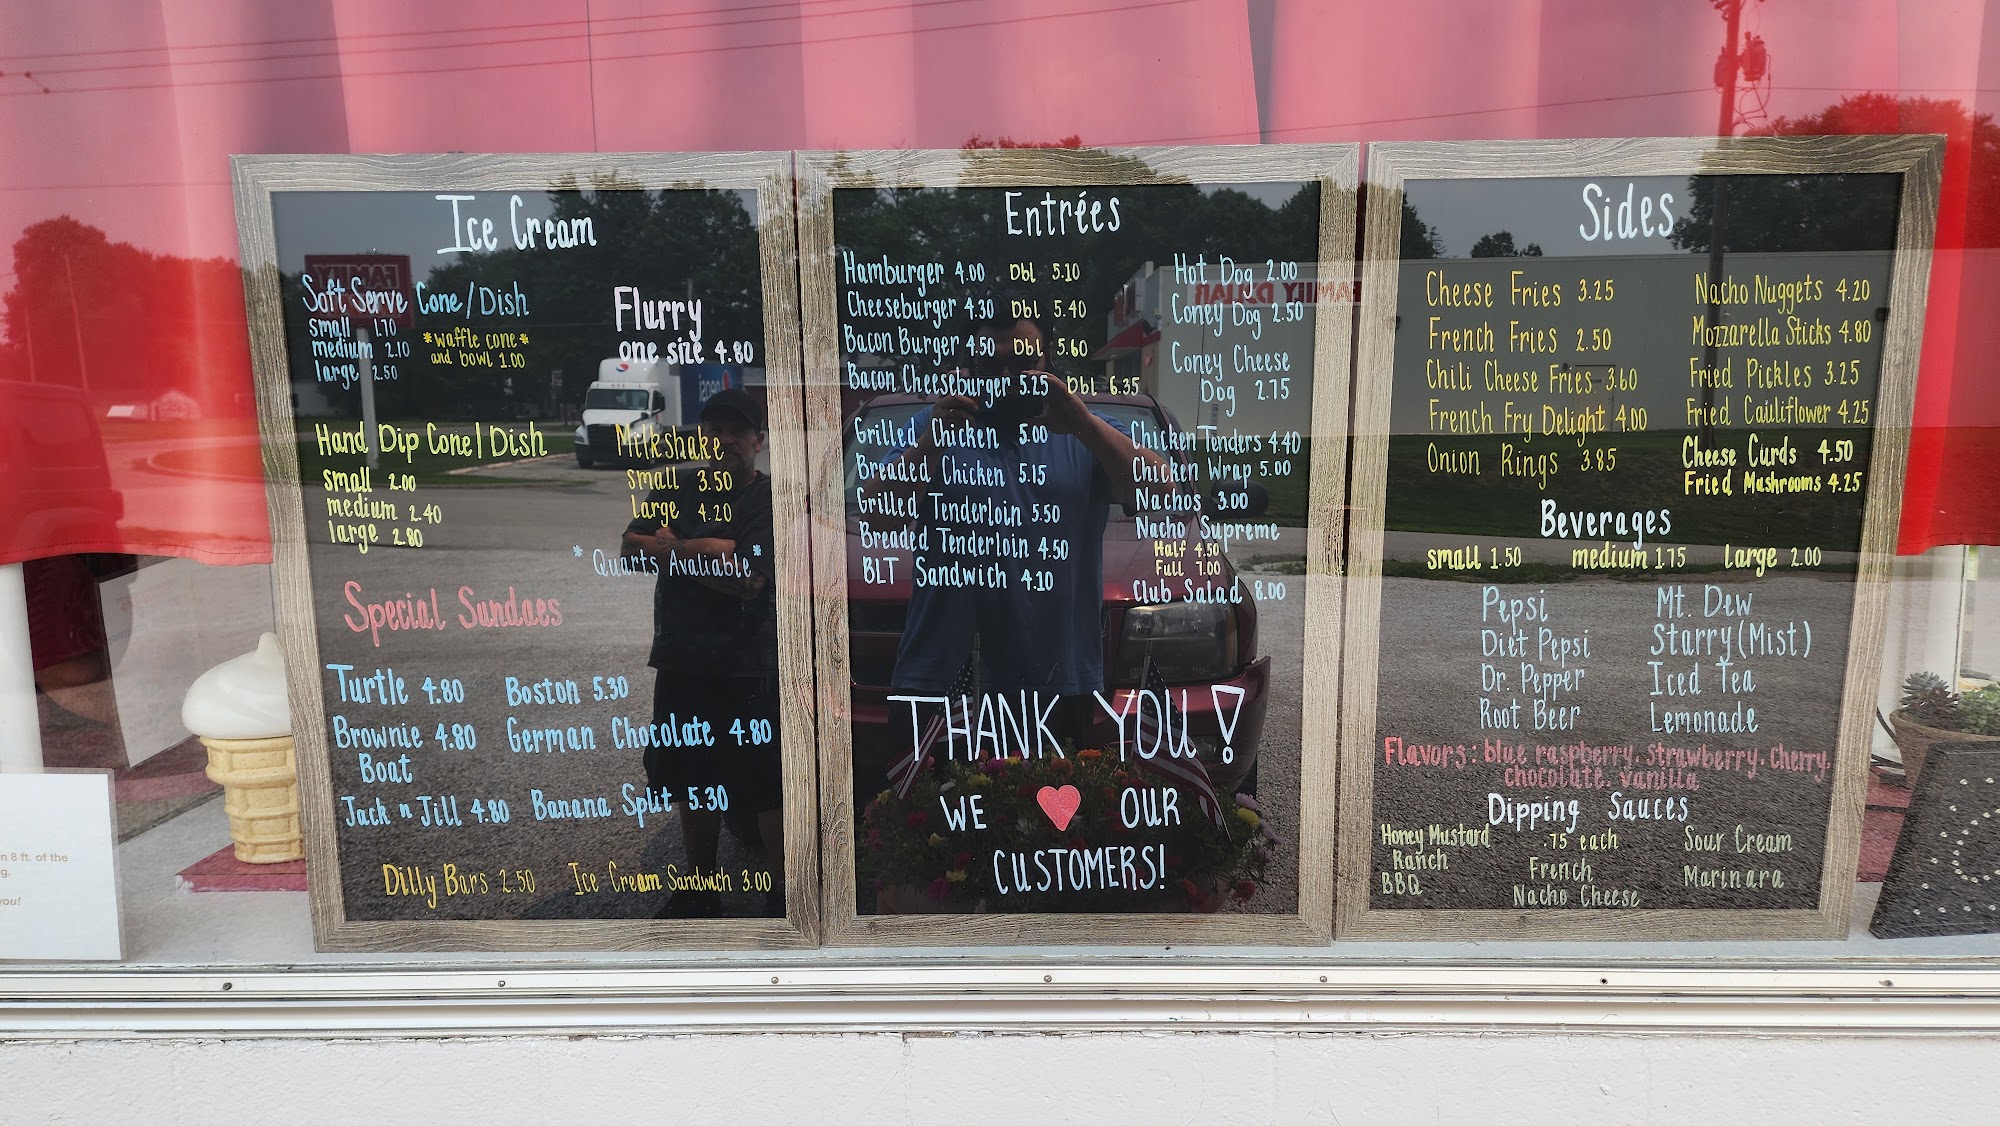 Ice Cream
Soft Serve Cone/Dish
small 1.70
medium 2.10
large 2.50
*waffle cone*
and bowl 1.00
Flurry
one size 4.80
Hand Dip Cone/Dish
small 2.00
medium 2.40
large 2.80
Milkshake
small 3.50
large 4.20
*Quarts Avaliable*
Special Sundaes
Turtle 4.80
Boston 5.30
Brownie 4.80
Boat
German Chocolate 4.80
Jack n Jill 4.80
Banana Split 5.30
Dilly Bars 2.50
Ice Cream Sandwich 3.00
Entrées
Hamburger 4.00 Dbl 5.10
Cheeseburger 4.30 Dbl 5.40
Bacon Burger 4.50 Dbl 5.60
Bacon Cheeseburger 5.25 Dbl 6.35
Grilled Chicken 5.00
Breaded Chicken 5.15
Grilled Tenderloin 5.50
Breaded Tenderloin 4.50
BLT Sandwich 4.10
Hot Dog 2.00
Coney Dog 2.50
Coney Cheese
Dog 2.75
Chicken Tenders 4.40
Chicken Wrap 5.00
Nachos 3.00
Nacho Supreme
Half 4.50
Full 7.00
Club Salad 8.00
THANK YOU!
WE OUR
CUSTOMERS!
Sides
Cheese Fries 3.25
French Fries 2.50
Chili Cheese Fries 3.60
French Fry Delight 4.00
Onion Rings 3.85
Nacho Nuggets 4.20
Mozzarella Sticks 4.80
Fried Pickles 3.25
Fried Cauliflower 4.25
Cheese Curds 4.50
Fried Mushrooms 4.25
Beverages
small 1.50 medium 1.75 large 2.00
Pepsi
Diet Pepsi
Dr. Pepper
Root Beer
Mt. Dew
Starry (Mist)
Iced Tea
Lemonade
Flavors: blue raspberry, strawberry, cherry,
chocolate, vanilla
Dipping Sauces
.75 each
Honey Mustard
Ranch
BBQ
French
Nacho Cheese
Sour Cream
Marinara
n 8 ft. of the
g.
you!
FAMILY
FAMILY DOLLAR
pepsi